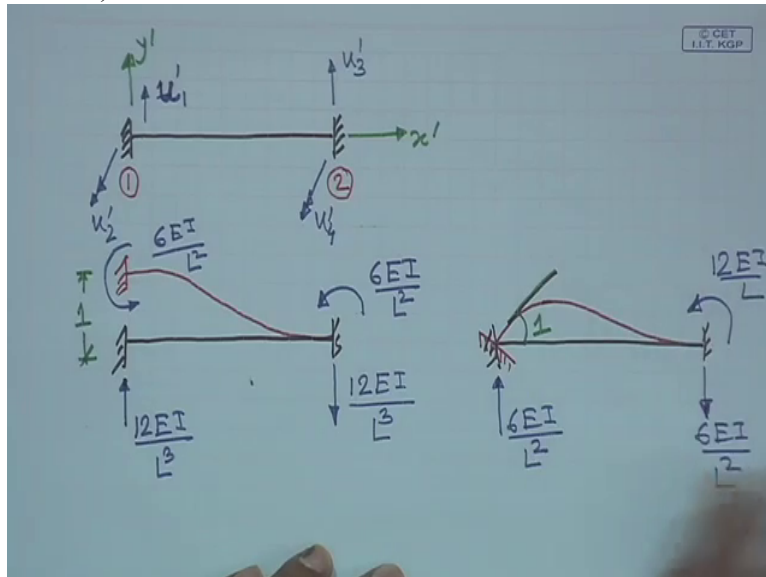 © CET
I.I.T. KGP
y'
u'₁
u'₃
x'
①
②
u'₂
u'₄
6EI
L²
6EI
L²
1
12EI
L³
12EI
L³
1
12EI
L
6EI
L²
6EI
L²